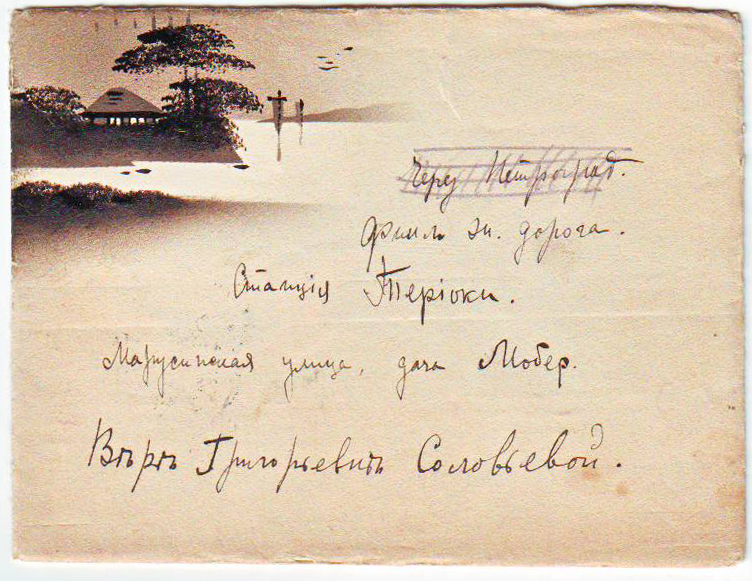 Через Петроград.
Финл. ж. дорога.
Станція Теріоки.
Марусинская улица, дача Мобер.
Вѣрѣ Григорьевнѣ Соловьевой.